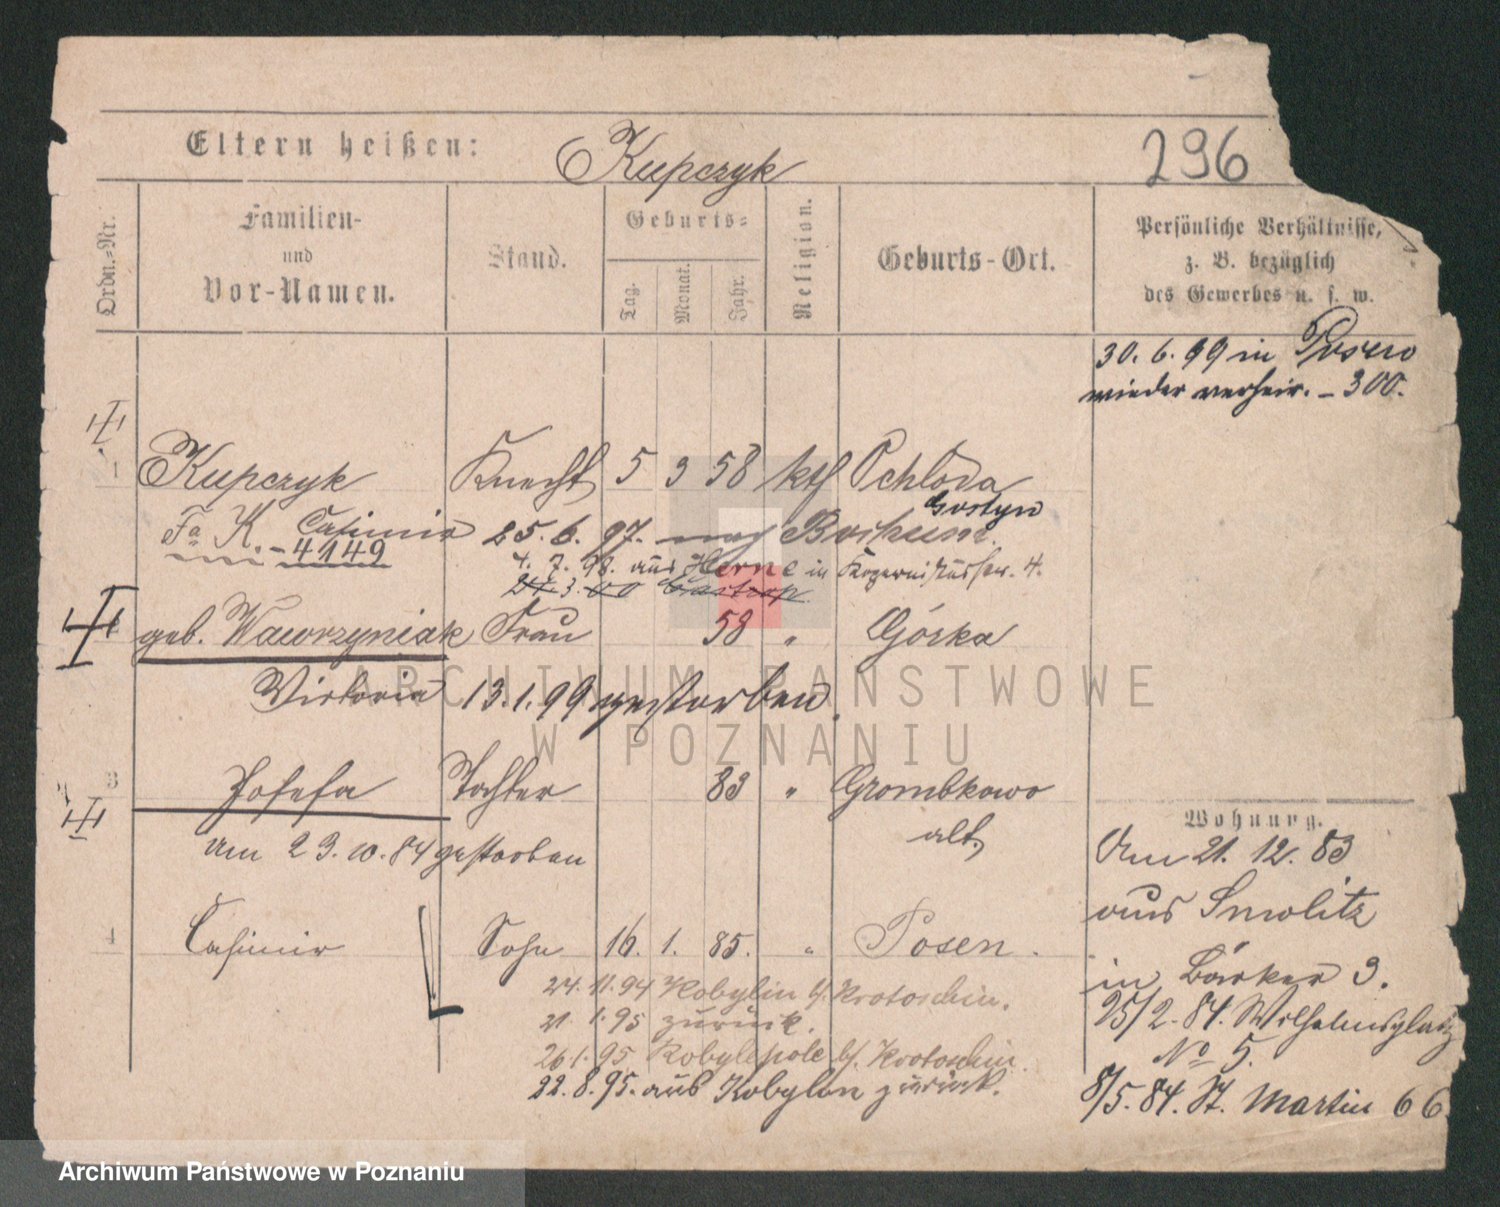 Eltern heißen: Kupczyk
296
Ordn.=Nr.
Familien-
und
Vor-Namen.
Stand.
Geburts=
Tag.
Monat.
Jahr.
Religion.
Geburts-Ort.
Persönliche Verhältnisse,
z. B. bezüglich
des Gewerbes u. s. w.
30. 6. 99 in Posen
wieder verheir. - 300.
1 Kupczyk Knecht 5 3 58 kth Pchloda
Gostyn
Fa K. Casimir 25. 6. 97. nach Borkum.
- 4149
4. 7. 98. aus Herne in 4.
24. 3. 00 Castrop.
geb. Wawrzyniak Frau 58 " Górka
Victoria 13. 1. 99 gestorben.
ARCHIWUM PAŃSTWOWE
W POZNANIU
3 Josefa Tochter 83 " Grombkowo
alt,
am 23. 10. 84 gestorben
4 Casimir Sohn 16. 1. 85. " Posen.
24. 11. 94 Kobylin b/. Krotoschin.
21. 1. 95 zurück.
26 1. 95 Kobylepole b/. Krotoschin.
22. 8. 95. aus Kobylin zurück.
Wohnung.
Am 21. 12. 83
aus Smolitz
in Bäcker 3.
25/2. 84. Wilhelmsplatz
No 5.
8/5. 84. St. Martin 66
Archiwum Państwowe w Poznaniu